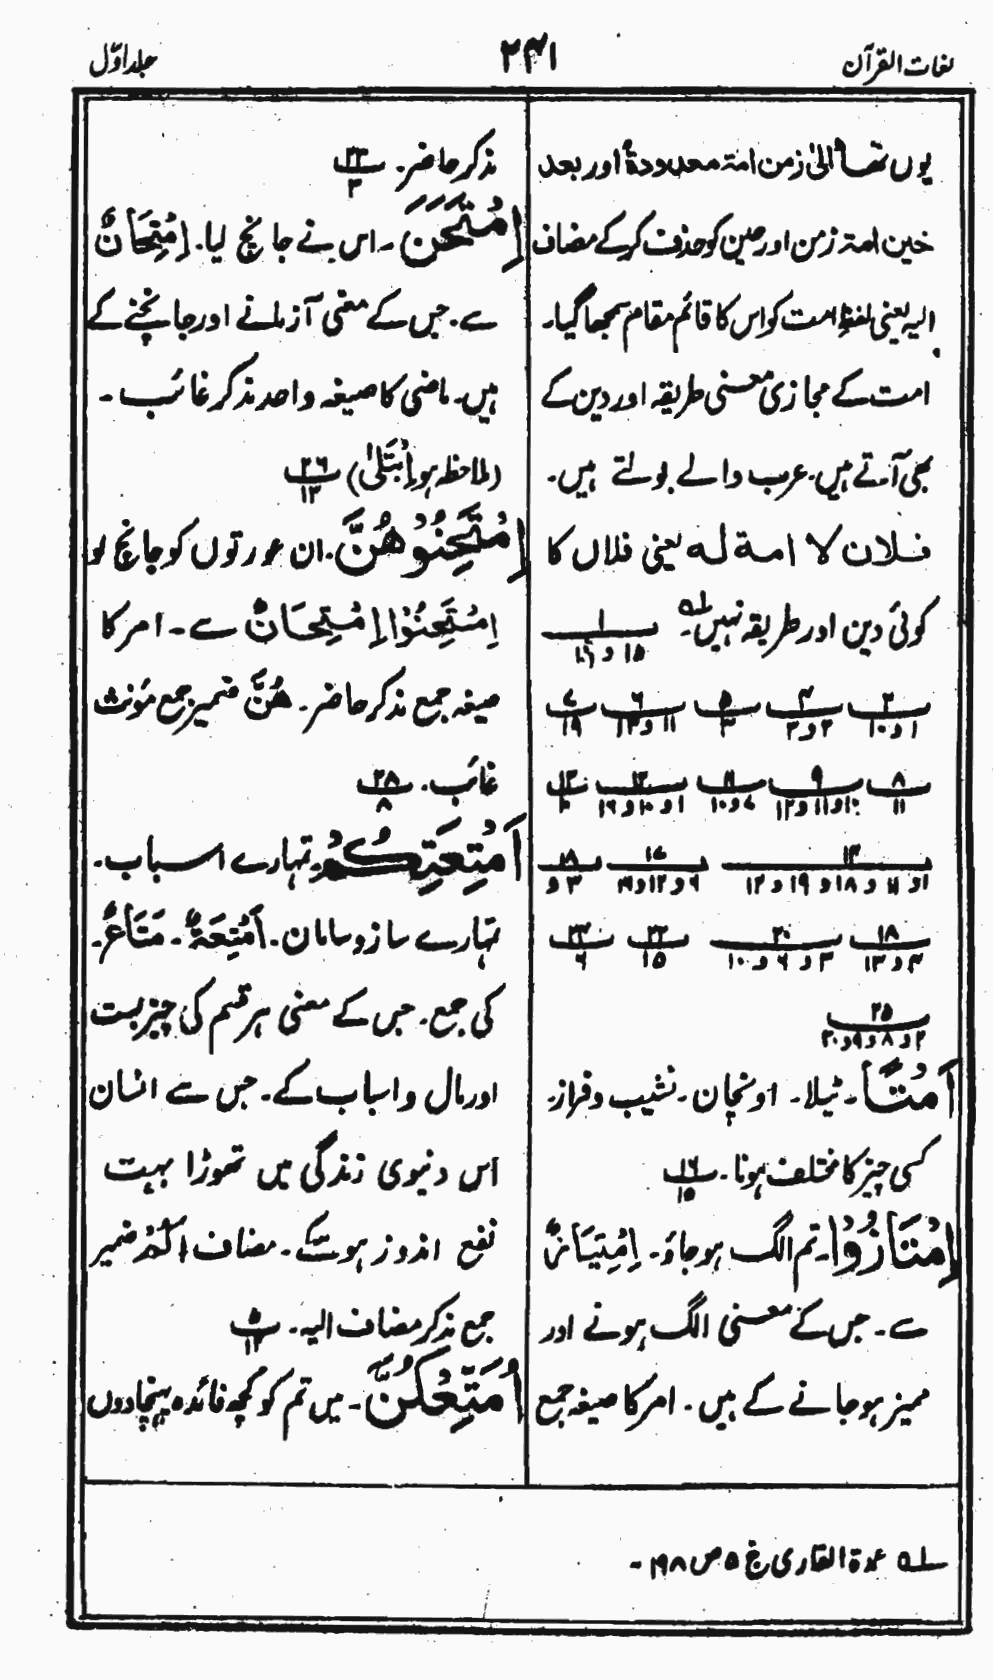 لغات القرآن
۲۴۱
جلد اوّل
یوں تھا الیٰ زمن امۃ معدودۃ اور بعد
حین امۃ زمن اور حین کو حذف کر کے مضاف
الیہ یعنی لفظ امت کو اس کا قائم مقام سمجھا گیا۔
امت کے مجازی معنی طریقہ اور دین کے
بھی آتے ہیں۔ عرب والے بولتے ہیں۔
فلان لا امۃ لہ یعنی فلاں کا
کوئی دین اور طریقہ نہیں۔ لہ ۱
۱۵ و
۲ ۴ ۵ ۶ ۷
۱ و ۱۰ ۲ و ۳ ۳ ۱۱ و ۱۳ ۱۹
۸ ۹ ۱۱ ۱۲ ۱۳
۱۱ ۱۰ و ۱۱ و ۱۲ ۷ و ۱۰ ۱ و ۱۰ و ۱۶
۱۴ ۱۷ ۱۸
۱ و ۱۱ و ۱۸ و ۱۹ و ۱۲ ۶ و ۱۲ و ۱۹ ۳ و
۱۸ ۲۰ ۲۲ ۲۳
۴ و ۱۳ ۳ و ۶ و ۱۰ ۱۵ ۶
۲۵
۲ و ۸ و ۹ و ۲۰
اَمْتًا۔ ٹیلا۔ اونچان۔ نشیب و فراز۔
کسی چیز کا مختلف ہونا۔ ۱۶
۱۵
اِمْتَازُوْا۔ تم الگ ہو جاؤ۔ اِمْتِیَازٌ
سے۔ جس کے معنی الگ ہونے اور
ممیز ہو جانے کے ہیں۔ امر کا صیغہ جمع
مذکر حاضر۔ ۲۳
۳
اِمْتَحَنَ۔ اس نے جانچ لیا۔ اِمْتِحَانٌ
سے۔ جس کے معنی آزمانے اور جانچنے کے
ہیں۔ ماضی کا صیغہ واحد مذکر غائب۔
(ملاحظہ ہو اِبْتَلیٰ) ۲۶
۱۳
اِمْتَحِنُوْهُنَّ۔ ان عورتوں کو جانچ لو
اِمْتَحِنُوْا اِمْتِحَانٌ سے۔ امر کا
صیغہ جمع مذکر حاضر۔ هُنَّ ضمیر جمع مؤنث
غائب۔ ۲۸
۸
اَمْتِعَتِکُمْ۔ تمہارے اسباب۔
تمہارے ساز و سامان۔ اَمْتِعَۃٌ۔ مَتَاعٌ۔
کی جمع۔ جس کے معنی ہر قسم کی چیز بست
اور مال و اسباب کے۔ جس سے انسان
اس دنیوی زندگی میں تھوڑا بہت
نفع اندوز ہو سکے۔ مضاف کُمْ ضمیر
جمع مذکر مضاف الیہ۔ ۵
۱۲
اُمَتِّعْکُنَّ۔ میں تم کو کچھ فائدہ پہنچا دوں
لہ عمدۃ القاری ج ۵ ص ۴۹۸۔